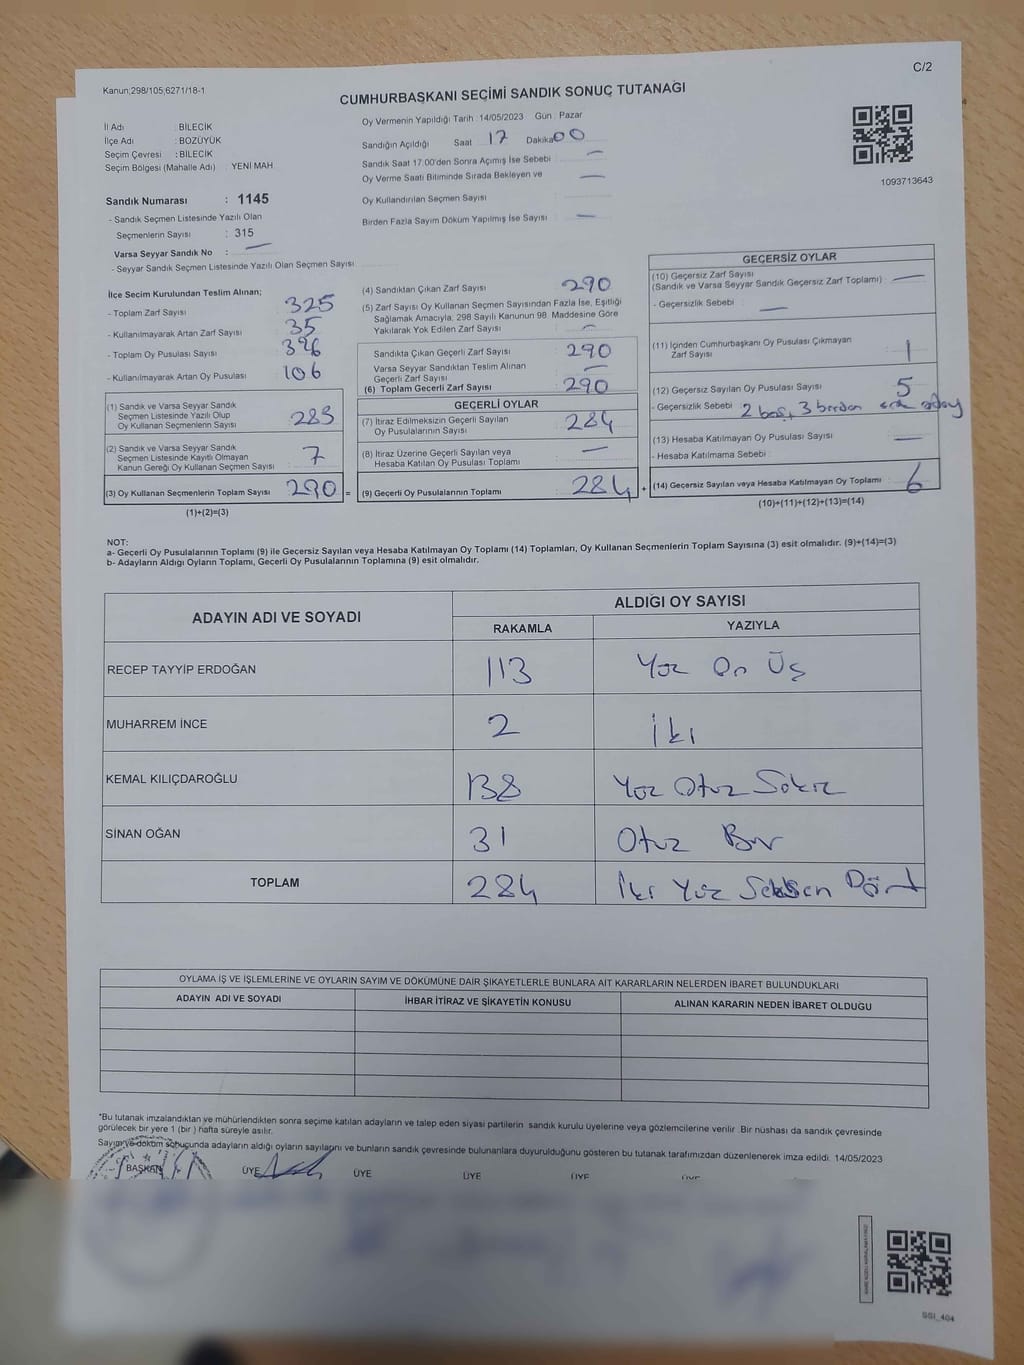 Kanun;298/105;6271/18-1
C/2
CUMHURBAŞKANI SEÇİMİ SANDIK SONUÇ TUTANAĞI
İl Adı : BİLECİK
İlçe Adı : BOZÜYÜK
Seçim Çevresi : BİLECİK
Seçim Bölgesi (Mahalle Adı) : YENİ MAH.
Oy Vermenin Yapıldığı Tarih : 14/05/2023 Gün : Pazar
Sandığın Açıldığı Saat 17 Dakika 00
Sandık Saat 17.00'den Sonra Açımış İse Sebebi —
Oy Verme Saati Bitiminde Sırada Bekleyen ve —
Oy Kullandırılan Seçmen Sayısı
Birden Fazla Sayım Döküm Yapılmış İse Sayısı —
1093713643
Sandık Numarası : 1145
- Sandık Seçmen Listesinde Yazılı Olan
Seçmenlerin Sayısı : 315
Varsa Seyyar Sandık No : —
- Seyyar Sandık Seçmen Listesinde Yazılı Olan Seçmen Sayısı
İlçe Secim Kurulundan Teslim Alınan;
- Toplam Zarf Sayısı 325
- Kullanılmayarak Artan Zarf Sayısı 35
- Toplam Oy Pusulası Sayısı 396
- Kullanılmayarak Artan Oy Pusulası 106
(1) Sandık ve Varsa Seyyar Sandık
Seçmen Listesinde Yazılı Olup
Oy Kullanan Seçmenlerin Sayısı 283
(2) Sandık ve Varsa Seyyar Sandık
Seçmen Listesinde Kayıtlı Olmayan
Kanun Gereği Oy Kullanan Seçmen Sayısı 7
(3) Oy Kullanan Seçmenlerin Toplam Sayısı 290 =
(1)+(2)=(3)
(4) Sandıktan Çıkan Zarf Sayısı 290
(5) Zarf Sayısı Oy Kullanan Seçmen Sayısından Fazla İse, Eşitliği
Sağlamak Amacıyla, 298 Sayılı Kanunun 98. Maddesine Göre
Yakılarak Yok Edilen Zarf Sayısı —
Sandıkta Çıkan Geçerli Zarf Sayısı 290
Varsa Seyyar Sandıktan Teslim Alınan
Geçerli Zarf Sayısı —
(6) Toplam Geçerli Zarf Sayısı 290
GEÇERLİ OYLAR
(7) İtiraz Edilmeksizin Geçerli Sayılan
Oy Pusulalarının Sayısı 284
(8) İtiraz Üzerine Geçerli Sayılan veya
Hesaba Katılan Oy Pusulası Toplamı —
(9) Geçerli Oy Pusulalarının Toplamı 284 +
GEÇERSİZ OYLAR
(10) Geçersiz Zarf Sayısı
(Sandık ve Varsa Seyyar Sandık Geçersiz Zarf Toplamı) —
- Geçersizlik Sebebi —
(11) İçinden Cumhurbaşkanı Oy Pusulası Çıkmayan
Zarf Sayısı 1
(12) Geçersiz Sayılan Oy Pusulası Sayısı 5
- Geçersizlik Sebebi 2 boş, 3 birden aday
(13) Hesaba Katılmayan Oy Pusulası Sayısı —
- Hesaba Katılmama Sebebi
(14) Geçersiz Sayılan veya Hesaba Katılmayan Oy Toplamı 6
(10)+(11)+(12)+(13)=(14)
NOT:
a- Geçerli Oy Pusulalarının Toplamı (9) ile Geçersiz Sayılan veya Hesaba Katılmayan Oy Toplamı (14) Toplamları, Oy Kullanan Seçmenlerin Toplam Sayısına (3) eşit olmalıdır. (9)+(14)=(3)
b- Adayların Aldığı Oyların Toplamı, Gecerli Oy Pusulalarının Toplamına (9) esit olmalıdır.
ADAYIN ADI VE SOYADI
ALDIĞI OY SAYISI
RAKAMLA YAZIYLA
RECEP TAYYİP ERDOĞAN 113 Yüz On Üç
MUHARREM İNCE 2 İki
KEMAL KILIÇDAROĞLU 138 Yüz Otuz Sekiz
SİNAN OĞAN 31 Otuz Bir
TOPLAM 284 İki Yüz Seksen Dört
OYLAMA İŞ VE İŞLEMLERİNE VE OYLARIN SAYIM VE DÖKÜMÜNE DAİR ŞİKAYETLERLE BUNLARA AİT KARARLARIN NELERDEN İBARET BULUNDUKLARI
ADAYIN ADI VE SOYADI İHBAR İTİRAZ VE ŞİKAYETİN KONUSU ALINAN KARARIN NEDEN İBARET OLDUĞU
*Bu tutanak imzalandıktan ve mühürlendikten sonra seçime katılan adayların ve talep eden siyasi partilerin sandık kurulu üyelerine veya gözlemcilerine verilir. Bir nüshası da sandık çevresinde
görülecek bir yere 1 (bir) hafta süreyle asılır.
Sayım ve döküm sonucunda adayların aldığı oyların sayılarını ve bunların sandık çevresinde bulunanlara duyurulduğunu gösteren bu tutanak tarafımızdan düzenlenerek imza edildi. 14/05/2023
BAŞKAN ÜYE ÜYE ÜYE ÜYE ÜYE
SSI_404